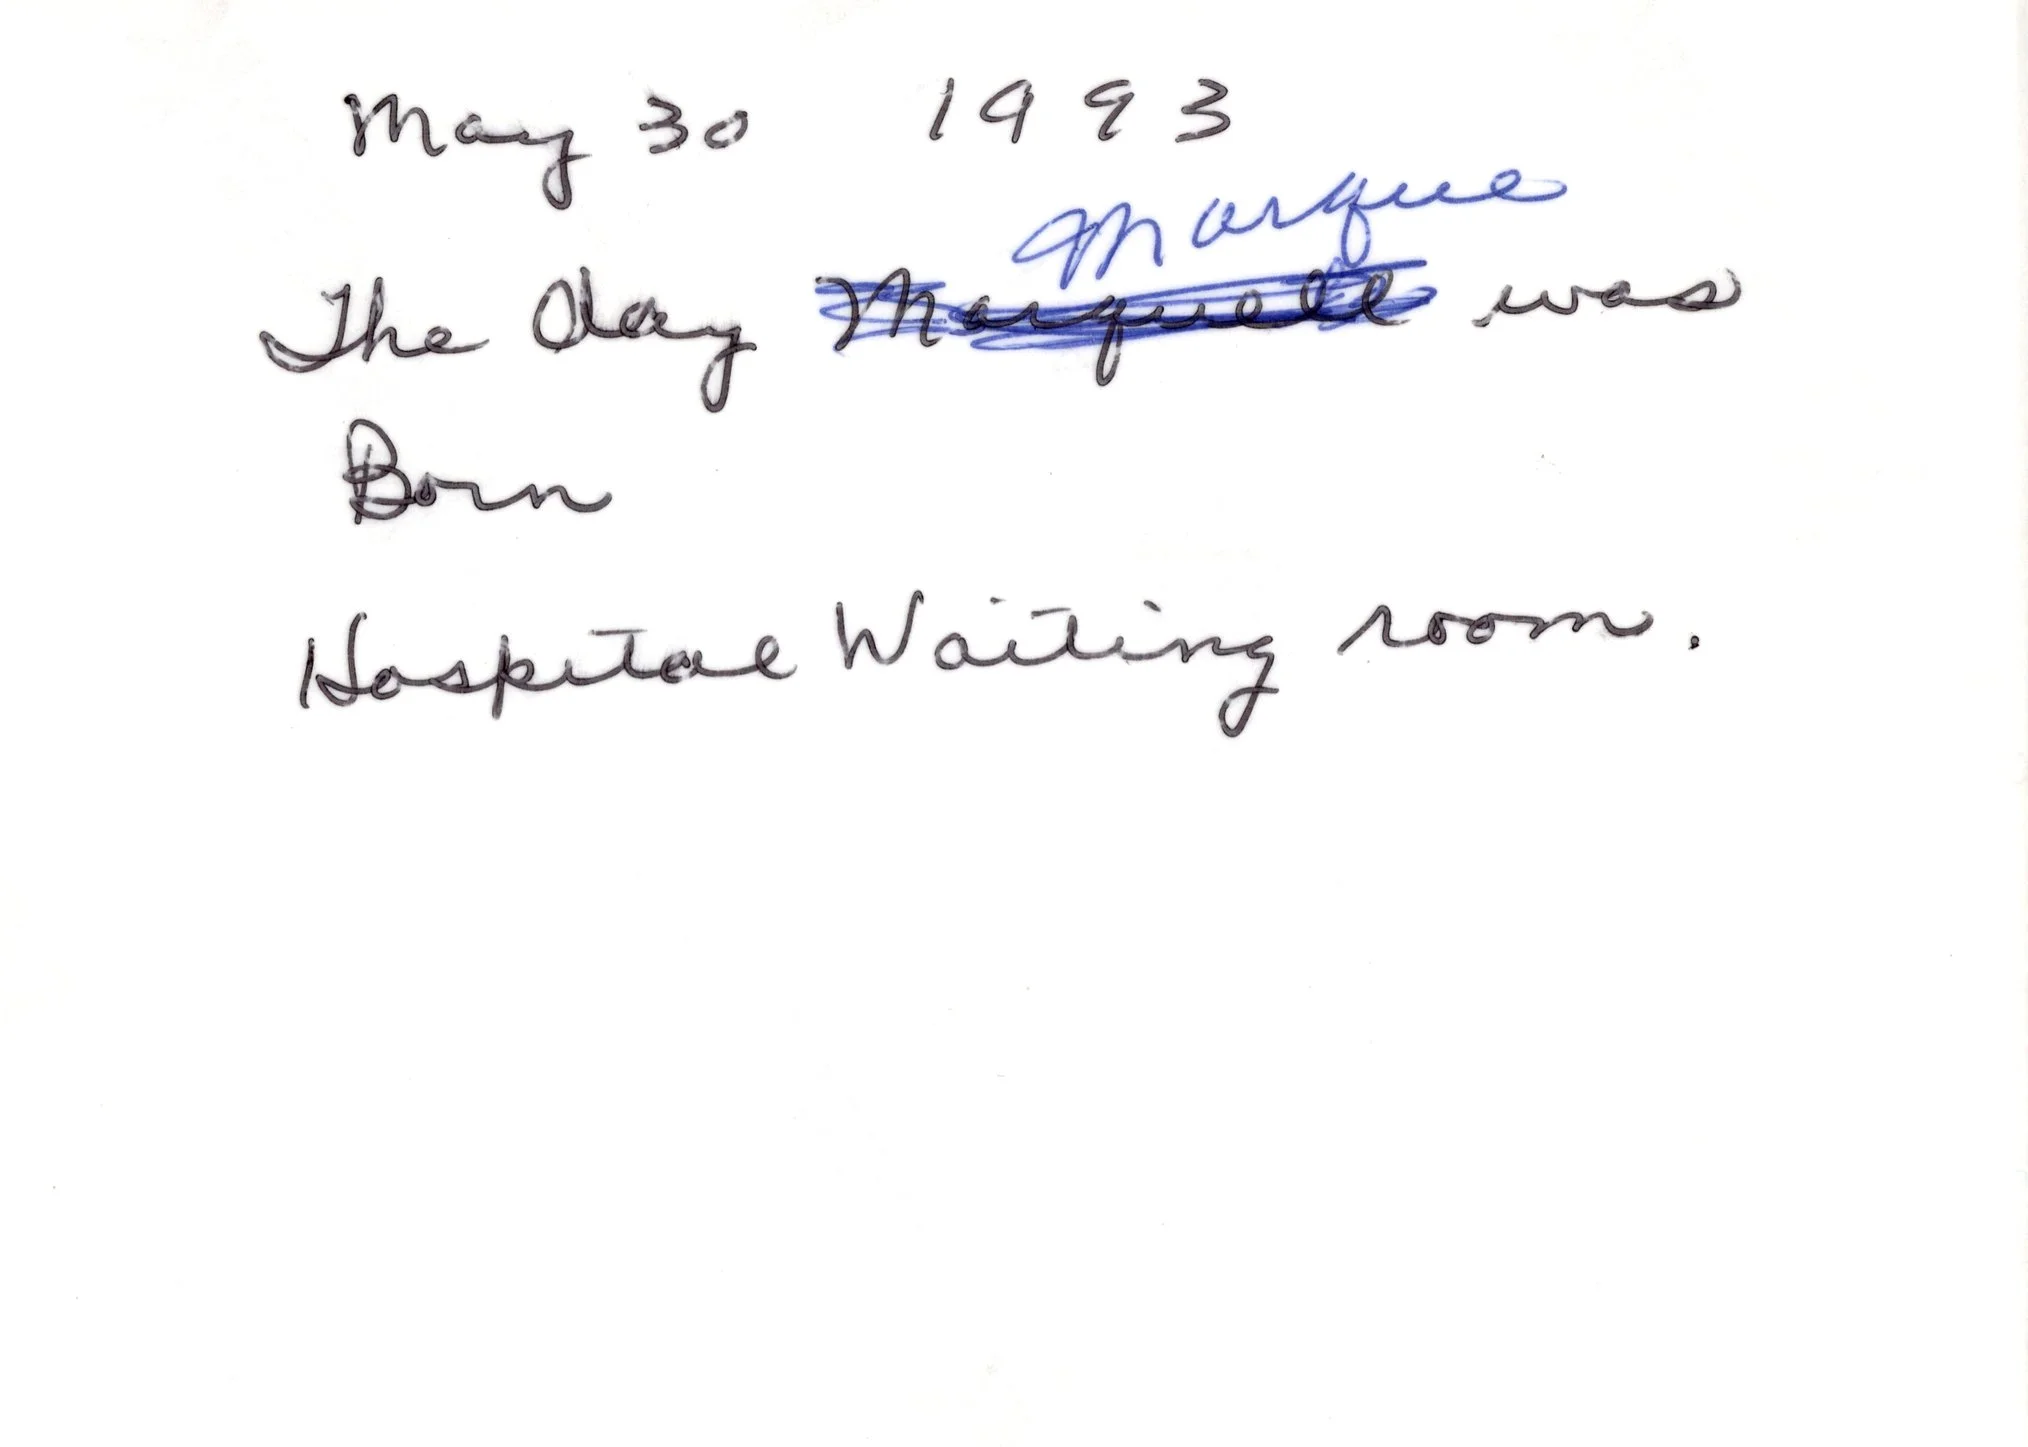 May 30 1993
Marque
The day Marquell was
Born
Hospital Waiting room.